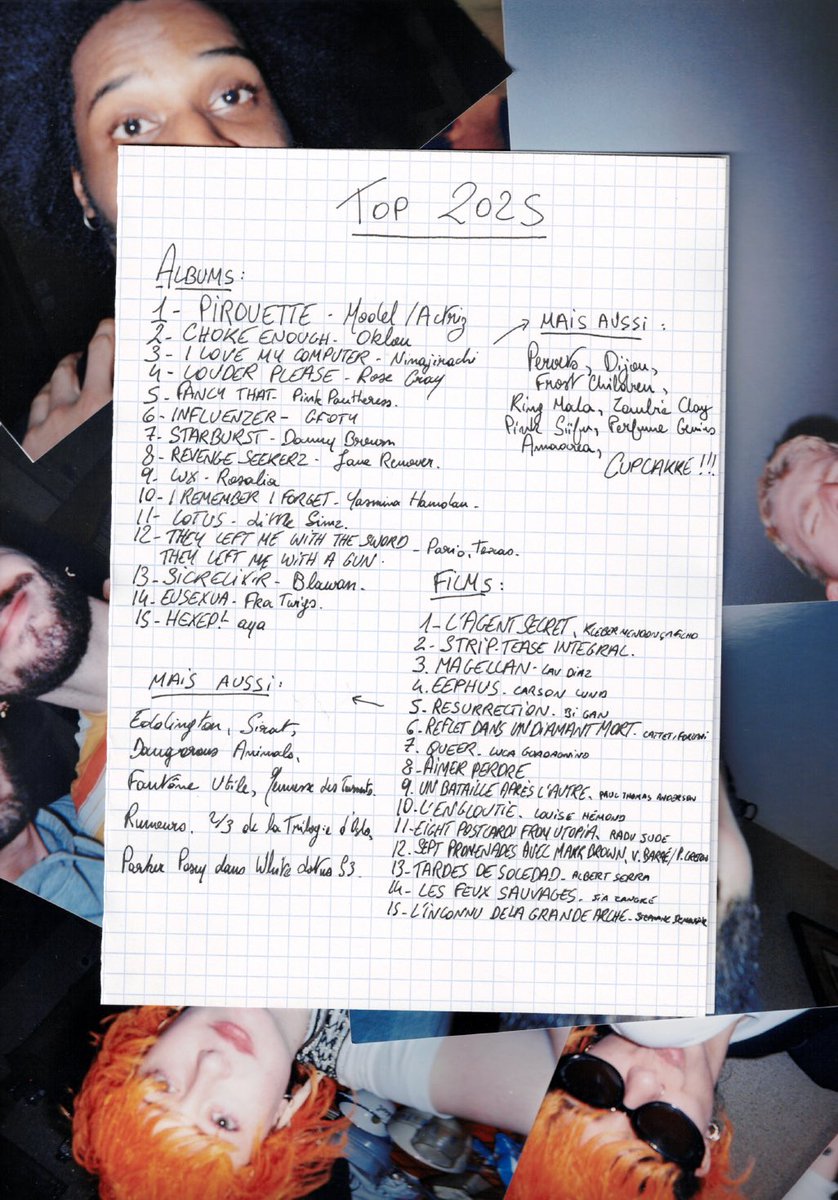 TOP 2025
ALBUMS:
1- PIROUETTE - Model/Actriz
2- CHOKE ENOUGH- Oklou
3- I LOVE MY COMPUTER - Ninajirachi
4- LOUDER PLEASE - Rose Gray
5- FANCY THAT- Pink Pantheress.
6- INFLUENZER - GFOTY
7- STARBURST - Danny Brown
8- REVENGE SEEKERZ - Jane Remover.
9- LUX - Rosalia
10- I REMEMBER I FORGET - Yasmina Hamdan.
11- LOTUS - Little Simz.
12- THEY LEFT ME WITH THE SWORD
THEY LEFT ME WITH A GUN. - Paris, Texas.
13- SICKELIXIR - Blawan.
14- EUSEXUA - Fka Twigs.
15- HEXED! aya
→ MAIS AUSSI :
Dijon,
Frost Children,
King Mala, Zombie Clay
Pink Siifu, Perfume Genius
Amaarea,
CUPCAKKE !!!
FILMS:
1- L'AGENT SECRET, KLEBER MENDONÇA FILHO
2- STRIP-TEASE INTEGRAL.
3. MAGELLAN - LAV DIAZ
4. EEPHUS - CARSON LUND
5- RESURRECTION. BI GAN
6- REFLET DANS UN DIAMANT MORT. CATTET, FORZANI
7. QUEER. LUCA GUADAGNINO
8- AIMER PERDRE
9. UN BATAILLE APRÈS L'AUTRE. PAUL THOMAS ANDERSON
10. L'ENGLOUTIE. LOUISE HÉMOND
11- EIGHT POSTCARDS FROM UTOPIA. RADU JUDE
12. SEPT PROMENADES AVEC MARK BROWN, V. BARRÉ/P. CRETON
13- TARDES DE SOLEDAD - ALBERT SERRA
14- LES FEUX SAUVAGES. JIA ZANGKÉ
15- L'INCONNU DE LA GRANDE ARCHE - STEPHANE DEMOUSTIER
← MAIS AUSSI :
Eddington, Sirat,
Dangerous Animals,
Fantôme Utile, Jeunesse des Tourments.
Rumeurs. 2/3 de la Trilogie d'Oslo,
Parker Posey dans White Lotus S3.